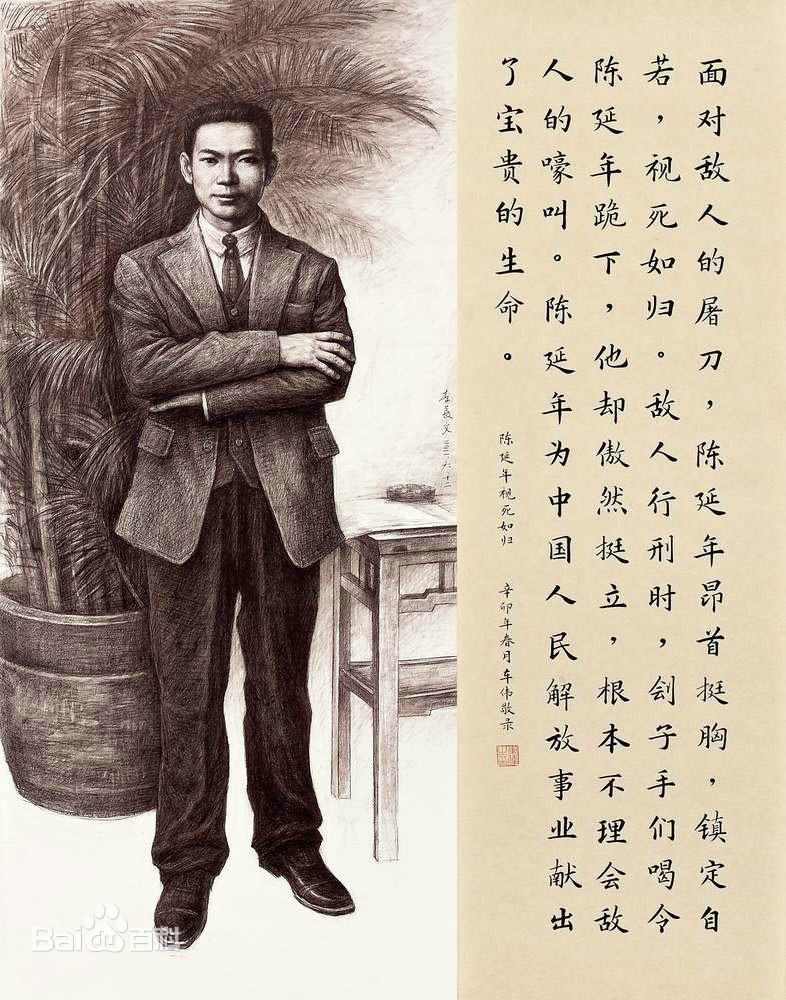 面对敌人的屠刀，陈延年昂首挺胸，镇定自
若，视死如归。敌人行刑时，刽子手们喝令
陈延年跪下，他却傲然挺立，根本不理会敌
人的嚎叫。陈延年为中国人民解放事业献出
了宝贵的生命。
陈延年视死如归
辛卯年春月车伟敬录
Bai百科